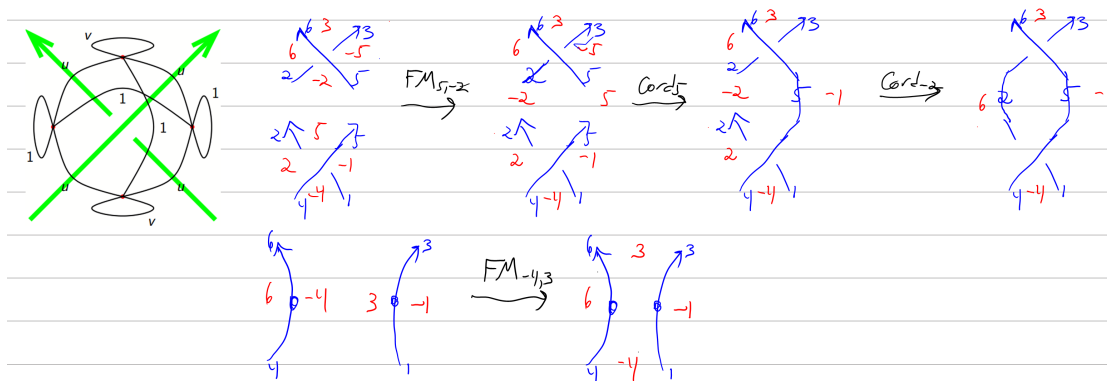 v
u u
1 1
1 1
u u
v
6 3 3
6 -5
2 -2 5
2 5 5
2 -1
4 -4 1
FM5,-2
6 3 3
6 -5
2 5
-2 5
2 5
2 -1
4 -4 1
Cord5
6 3 3
6
2
-2 5 -1
2
2
4 -4 1
Cord-2
6 3 3
6 2 5 -
4 -4 1
6 3
6 -4 3 -1
4 1
FM-4,3
6 3 3
6 -1
4 -4 1